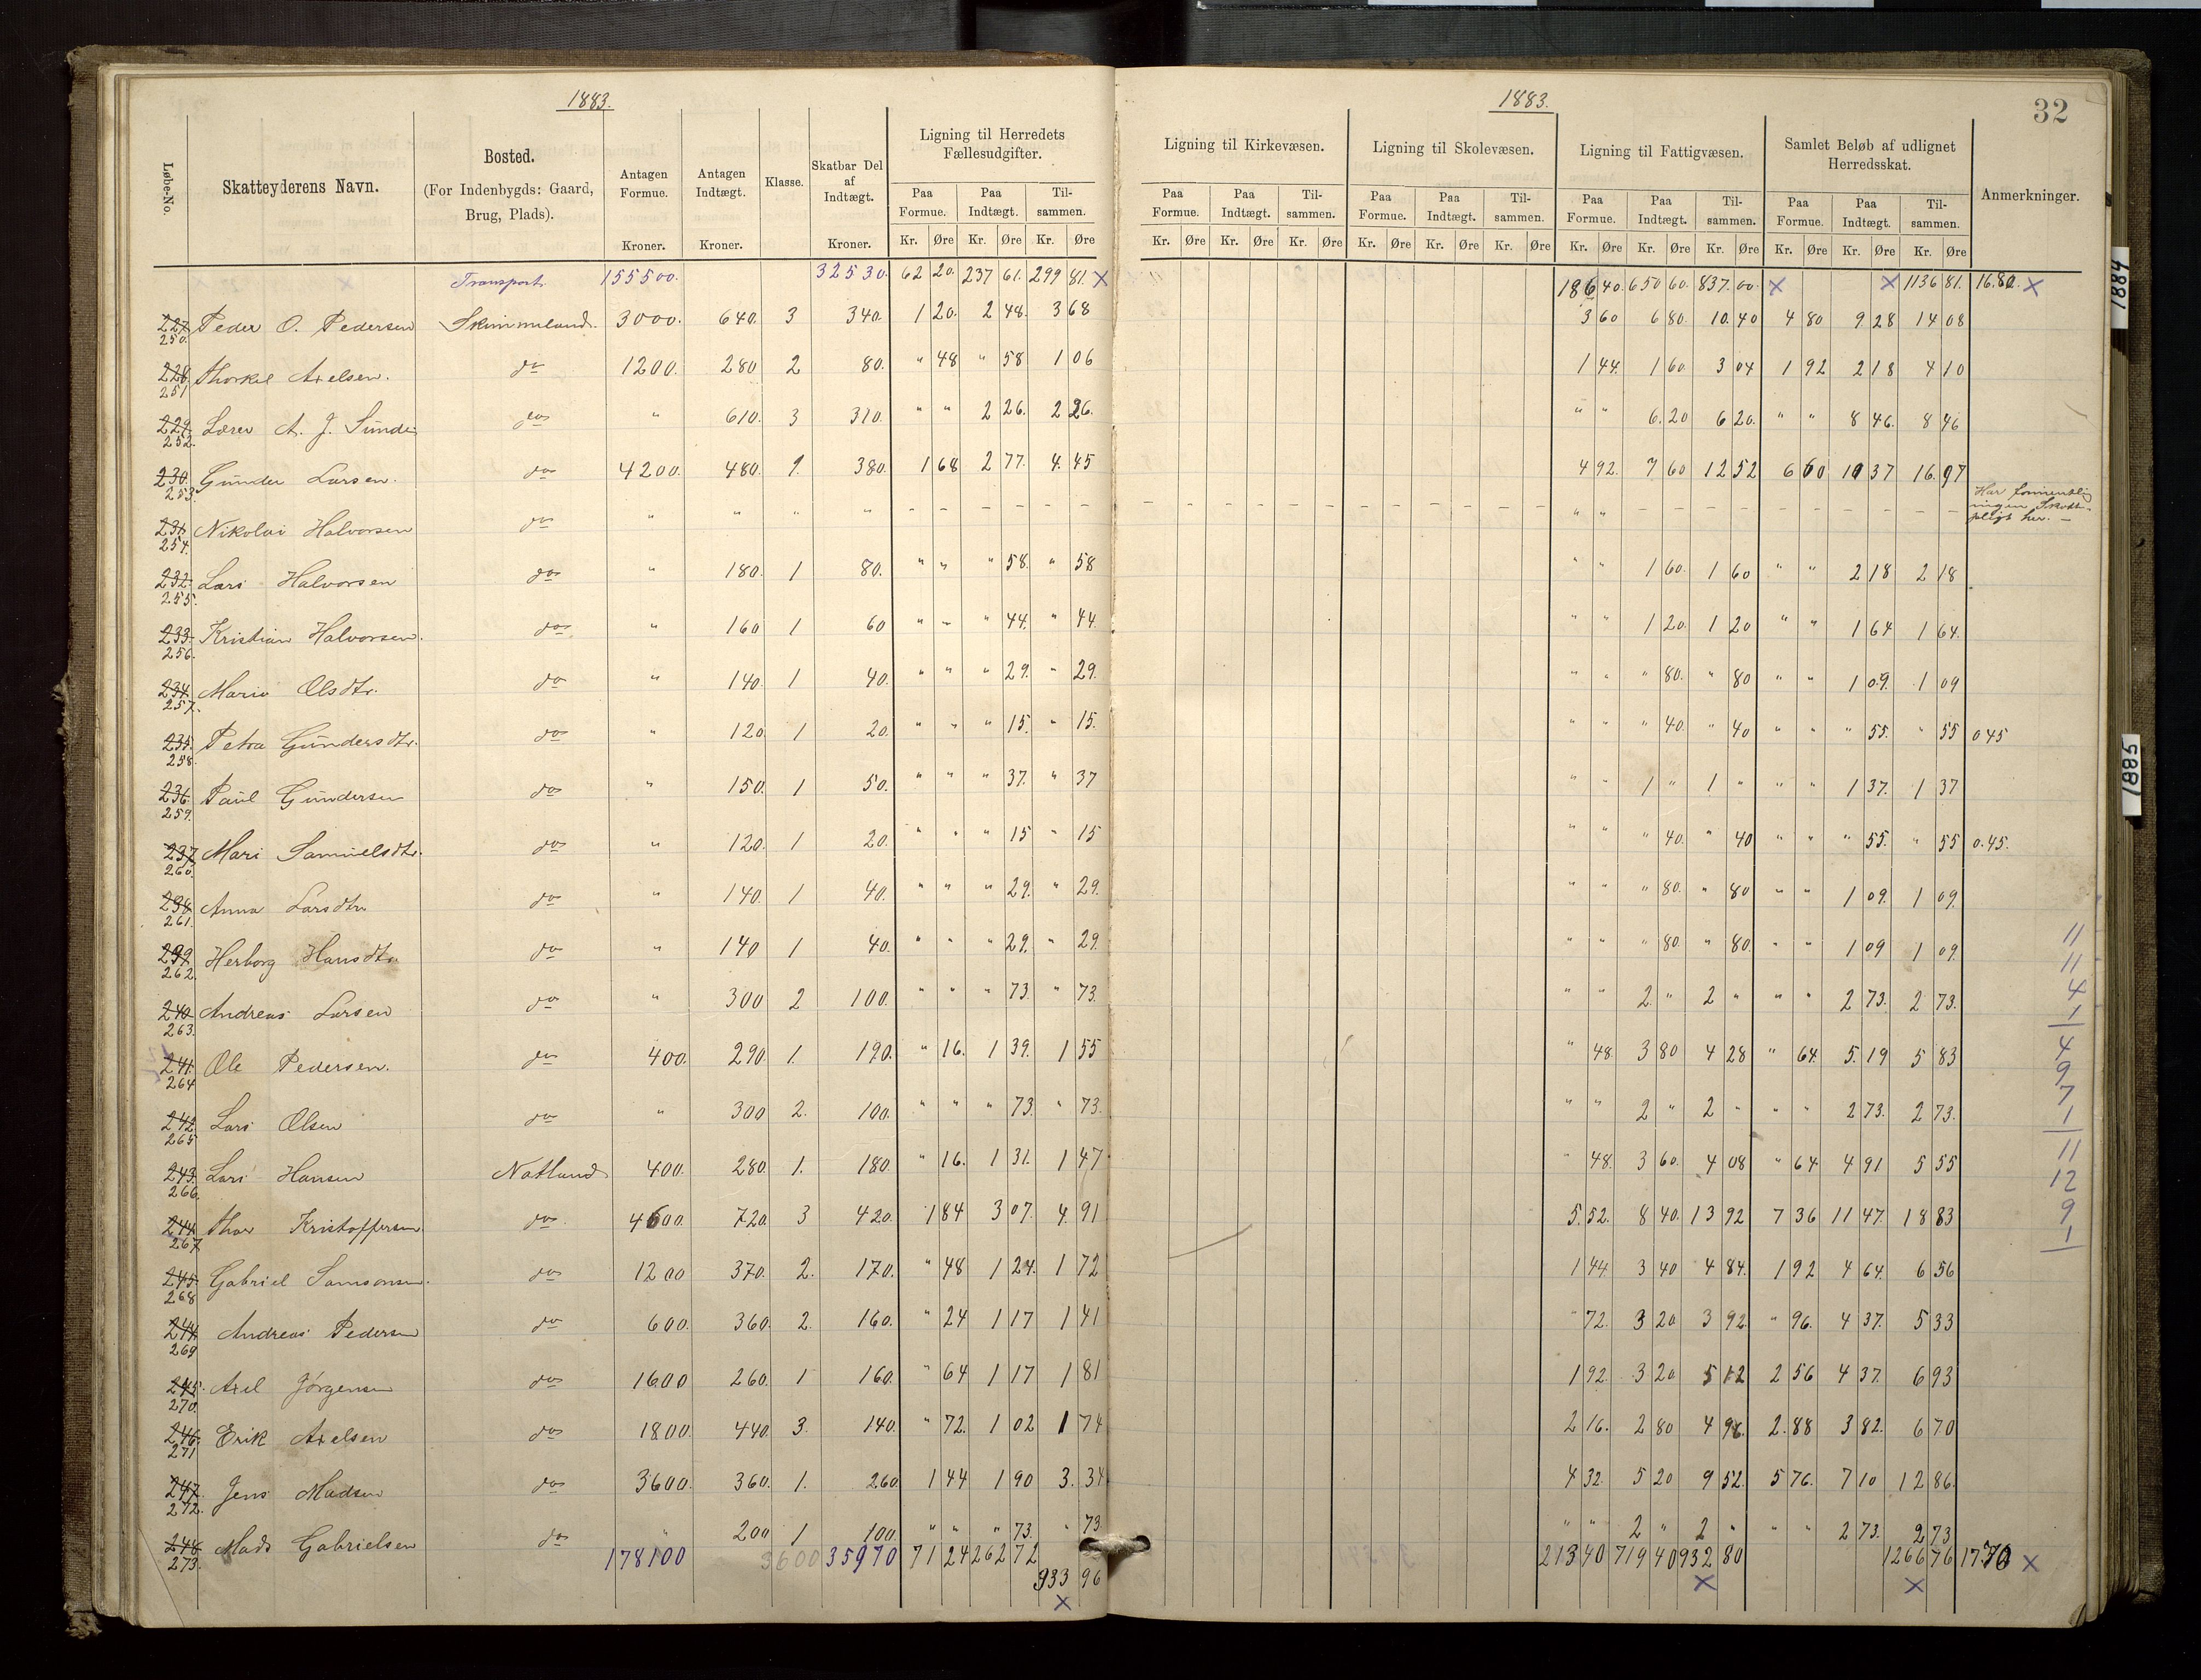 1883.
1883.
32
Løbe-No.
Skatteyderens Navn.
Bosted.
(For Indenbygds: Gaard, Brug, Plads).
Antagen Formue. Kroner.
Antagen Indtægt. Kroner.
Klasse.
Skatbar Del af Indtægt. Kroner.
Ligning til Herredets Fællesudgifter.
Paa Formue. Paa Indtægt. Til-sammen.
Kr. Øre Kr. Øre Kr. Øre
Ligning til Kirkevæsen.
Paa Formue. Paa Indtægt. Til-sammen.
Kr. Øre Kr. Øre Kr. Øre
Ligning til Skolevæsen.
Paa Formue. Paa Indtægt. Til-sammen.
Kr. Øre Kr. Øre Kr. Øre
Ligning til Fattigvæsen.
Paa Formue. Paa Indtægt. Til-sammen.
Kr. Øre Kr. Øre Kr. Øre
Samlet Beløb af udlignet Herredsskat.
Paa Formue. Paa Indtægt. Til-sammen.
Kr. Øre Kr. Øre Kr. Øre
Anmerkninger.
Transport 155500. 32530. 62 20. 237 61. 299 81. X 186 40. 650 60. 837. 00. X X 1136 81. 16.80. X
227 250. Peder O. Pedersen Skimmeland. 3000. 640. 3 340. 1 20. 2 48. 3 68 3 60 6 80. 10. 40 4 80 9 28 14 08
228. 251 Thorkel Axelsen. do 1200. 280 2 80. " 48 " 58 1 06 1 44. 1 60. 3 04 1 92 2 18 4 10
229. 252. Lærer A. J. Sunde do " 610. 3 310. " " 2 26. 2 26. " " 6. 20 6 20. " " 8 46. 8 46
230. 253. Gunder Larsen. do 4200. 480. 1. 380. 1 68 2 77. 4. 45 4 92. 7 60 12 52 6 60 10 37 16. 97
231 254. Nikolai Halvorsen do " " " " - - - - - - " " - - - - Har formentlig ingen Skatte-pligt her. -
232. 255. Lars Halvorsen do " 180. 1 80. " " " 58. " 58 " " 1 60. 1 60 " " 2 18 2 18
233. 256. Kristian Halvorsen. do " 160 1 60 " " " 44. " 44. " " 1 20. 1 20 " " 1 64 1 64.
234. 257. Mari Olsdtr. do " 140. 1 40. " " " 29. " 29. " " " 80. " 80 " " 1 09. 1 09
235. 258. Petra Gundersdtr. do " 120 1 20. " " " 15. " 15. " " " 40. " 40 " " " 55. " 55 0 45
236. 259. Paul Gundersen do " 150. 1 50. " " " 37. " 37 " " 1 " 1 " " " 1 37. 1 37
237 260. Mari Samuelsdtr. do " 120. 1 20. " " " 15 " 15 " " " 40. " 40 " " " 55. " 55 0.45.
238 261. Anna Larsdtr. do " 140. 1 40. " " " 29. " 29. " " " 80. " 80 " " 1 09. 1 09.
239 262. Herborg Hansdtr. do " 140 1 40. " " " 29. " 29. " " " 80. " 80. " " 1 09 1 09.
240 263. Andreas Larsen do " 300 2 100. " " " 73. " 73. " " 2 " 2 " " " 2 73. 2 73.
241. 264 Ole Pedersen. do 400. 290. 1. 190. " 16. 1 39. 1 55 " 48. 3 80 4 28 " 64. 5. 19 5 83
242 265 Lars Olsen do " 300 2. 100. " " " 73. " 73. " " 2 " 2 " " " 2 73. 2 73.
243. 266. Lars Hansen Natland 400. 280. 1. 180. " 16. 1 31. 1 47 " 48. 3 60. 4 08 " 64 4 91 5 55
244. 267 Thor Kristoffersen. do. 4600. 720. 3 420. 1 84 3 07. 4. 91 5. 52. 8 40. 13 92 7 36 11 47. 18 83
245. 268 Gabriel Samsonsen. do 1200 370. 2. 170. " 48 1 24. 1 72 1 44. 3 40 4 84. 1 92 4 64. 6 56
244 269 Andreas Pedersen do 600. 360. 2. 160. " 24 1 17 1 41 " 72. 3 20 3 92. " 96. 4 37. 5 33
245. 270. Axel Jørgensen do 1600 260. 1 160. " 64 1 17 1 81 1 92. 3 20 5 12 2 56 4 37. 6 93
246. 271 Erik Axelsen do 1800. 440. 3. 140. " 72. 1 02 1 74 2 16. 2 80 4 96. 2. 88 3 82. 6 70
247. 272. Jens Madsen do 3600. 360. 1. 260. 1 44 1 90 3. 34 4 32. 5 20 9 52. 5 76. 7 10 12 86.
248 273. Mads Gabrielsen do " 200 1 100. " " " 73. " 73. " " 2 " 2 " " " 2 73. 2 73
178100 3600 35970 71 24 262 72 213 40 719 40 932 80 1266 76 17.70 X
933 96
X X X
11
11
4
1
4
9
7
1
11
12
9
1
1884
1885